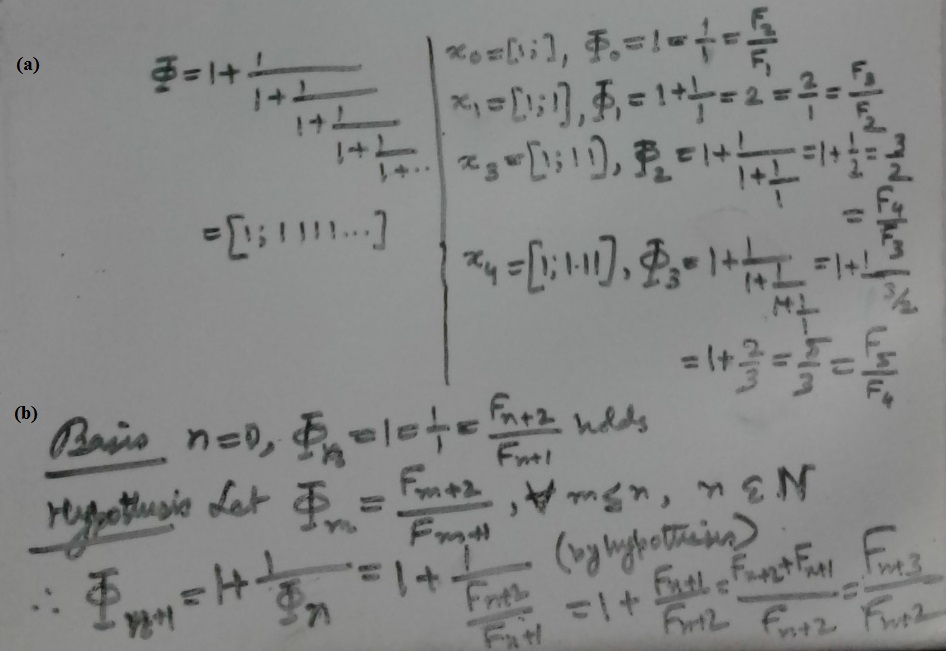 (a)
Φ = 1 + 1/(1 + 1/(1 + 1/(1 + 1/(1 + ..
= [1; 1 1 1 1 ...]
x₀ = [1;], Φ₀ = 1 = 1/1 = F₂/F₁
x₁ = [1; 1], Φ₁ = 1 + 1/1 = 2 = 2/1 = F₃/F₂
x₃ = [1; 1 1], Φ₂ = 1 + 1/(1 + 1/1) = 1 + 1/2 = 3/2
= F₄/F₃
x₄ = [1; 1·11], Φ₃ = 1 + 1/(1 + 1/(1 + 1/1)) = 1 + 1/(3/2)
= 1 + 2/3 = 5/3 = F₅/F₄
(b)
Basis n = 0, Φₙ = 1 = 1/1 = Fₙ₊₂/Fₙ₊₁ holds
Hypothesis Let Φₘ = Fₘ₊₂/Fₘ₊₁, ∀ m ≤ n, n ε N
∴ Φₙ₊₁ = 1 + 1/Φₙ = 1 + 1/(Fₙ₊₂/Fₙ₊₁) (by hypothesis) = 1 + Fₙ₊₁/Fₙ₊₂ = (Fₙ₊₂ + Fₙ₊₁)/Fₙ₊₂ = Fₙ₊₃/Fₙ₊₂